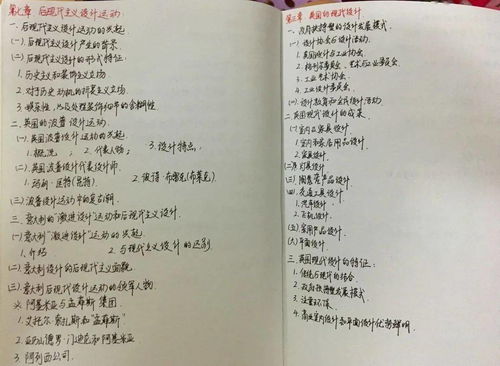 第七章 后现代主义设计运动
一、后现代主义设计运动的兴起
(一). 后现代主义设计产生的背景
(二). 后现代主义设计的形式特征
1. 历史主义和装饰主义立场
2. 对于历史动机的折衷主义立场
3. 娱乐性,以及处理装饰细节的含糊性
二、英国的波普设计运动
(一). 英国波普设计运动的兴起
1. 概况 2. 代表人物 3. 设计特点
(二). 英国波普设计代表设计师
1. 玛丽·匡特(昆特) 2. 彼得·布雷克(布莱克)
(三). 波普设计运动中的复古潮
三、意大利的“激进设计”运动和后现代主义设计
(一). 意大利“激进设计”运动的兴起
1. 介绍 2. 与现代主义设计的区别
(二). 意大利设计的后现代主义面貌
(三). 意大利后现代主义设计运动的领军人物
※ 阿基米亚与孟菲斯集团
1. 艾托尔·索扎斯和“孟菲斯”
2. 亚历山德罗·门迪尼和阿基米亚
3. 阿列西公司
第三章 英国的现代设计
一、政府扶持型的设计发展模式
(一) 设计协会与设计活动
1. 英国设计与工业协会
2. 格列尔委员会、艺术与工业委员会
3. 工业艺术协会
4. 工业设计委员会
(二). 设计教育和宣传设计活动
二、英国现代设计的成果
(一) 室内与家具设计
1. 室内和家居用品设计
2. 家具设计
(二) 灯具设计
(三) 陶瓷产品设计
(四). 交通工具设计
1. 汽车设计
2. 飞机设计
(五) 家用产品设计
(六) 平面设计
三、英国现代设计的特征
1. 传统与现代的结合
2. 政府扶持型发展模式
3. 注重环保
4. 商业室内设计和平面设计优势鲜明